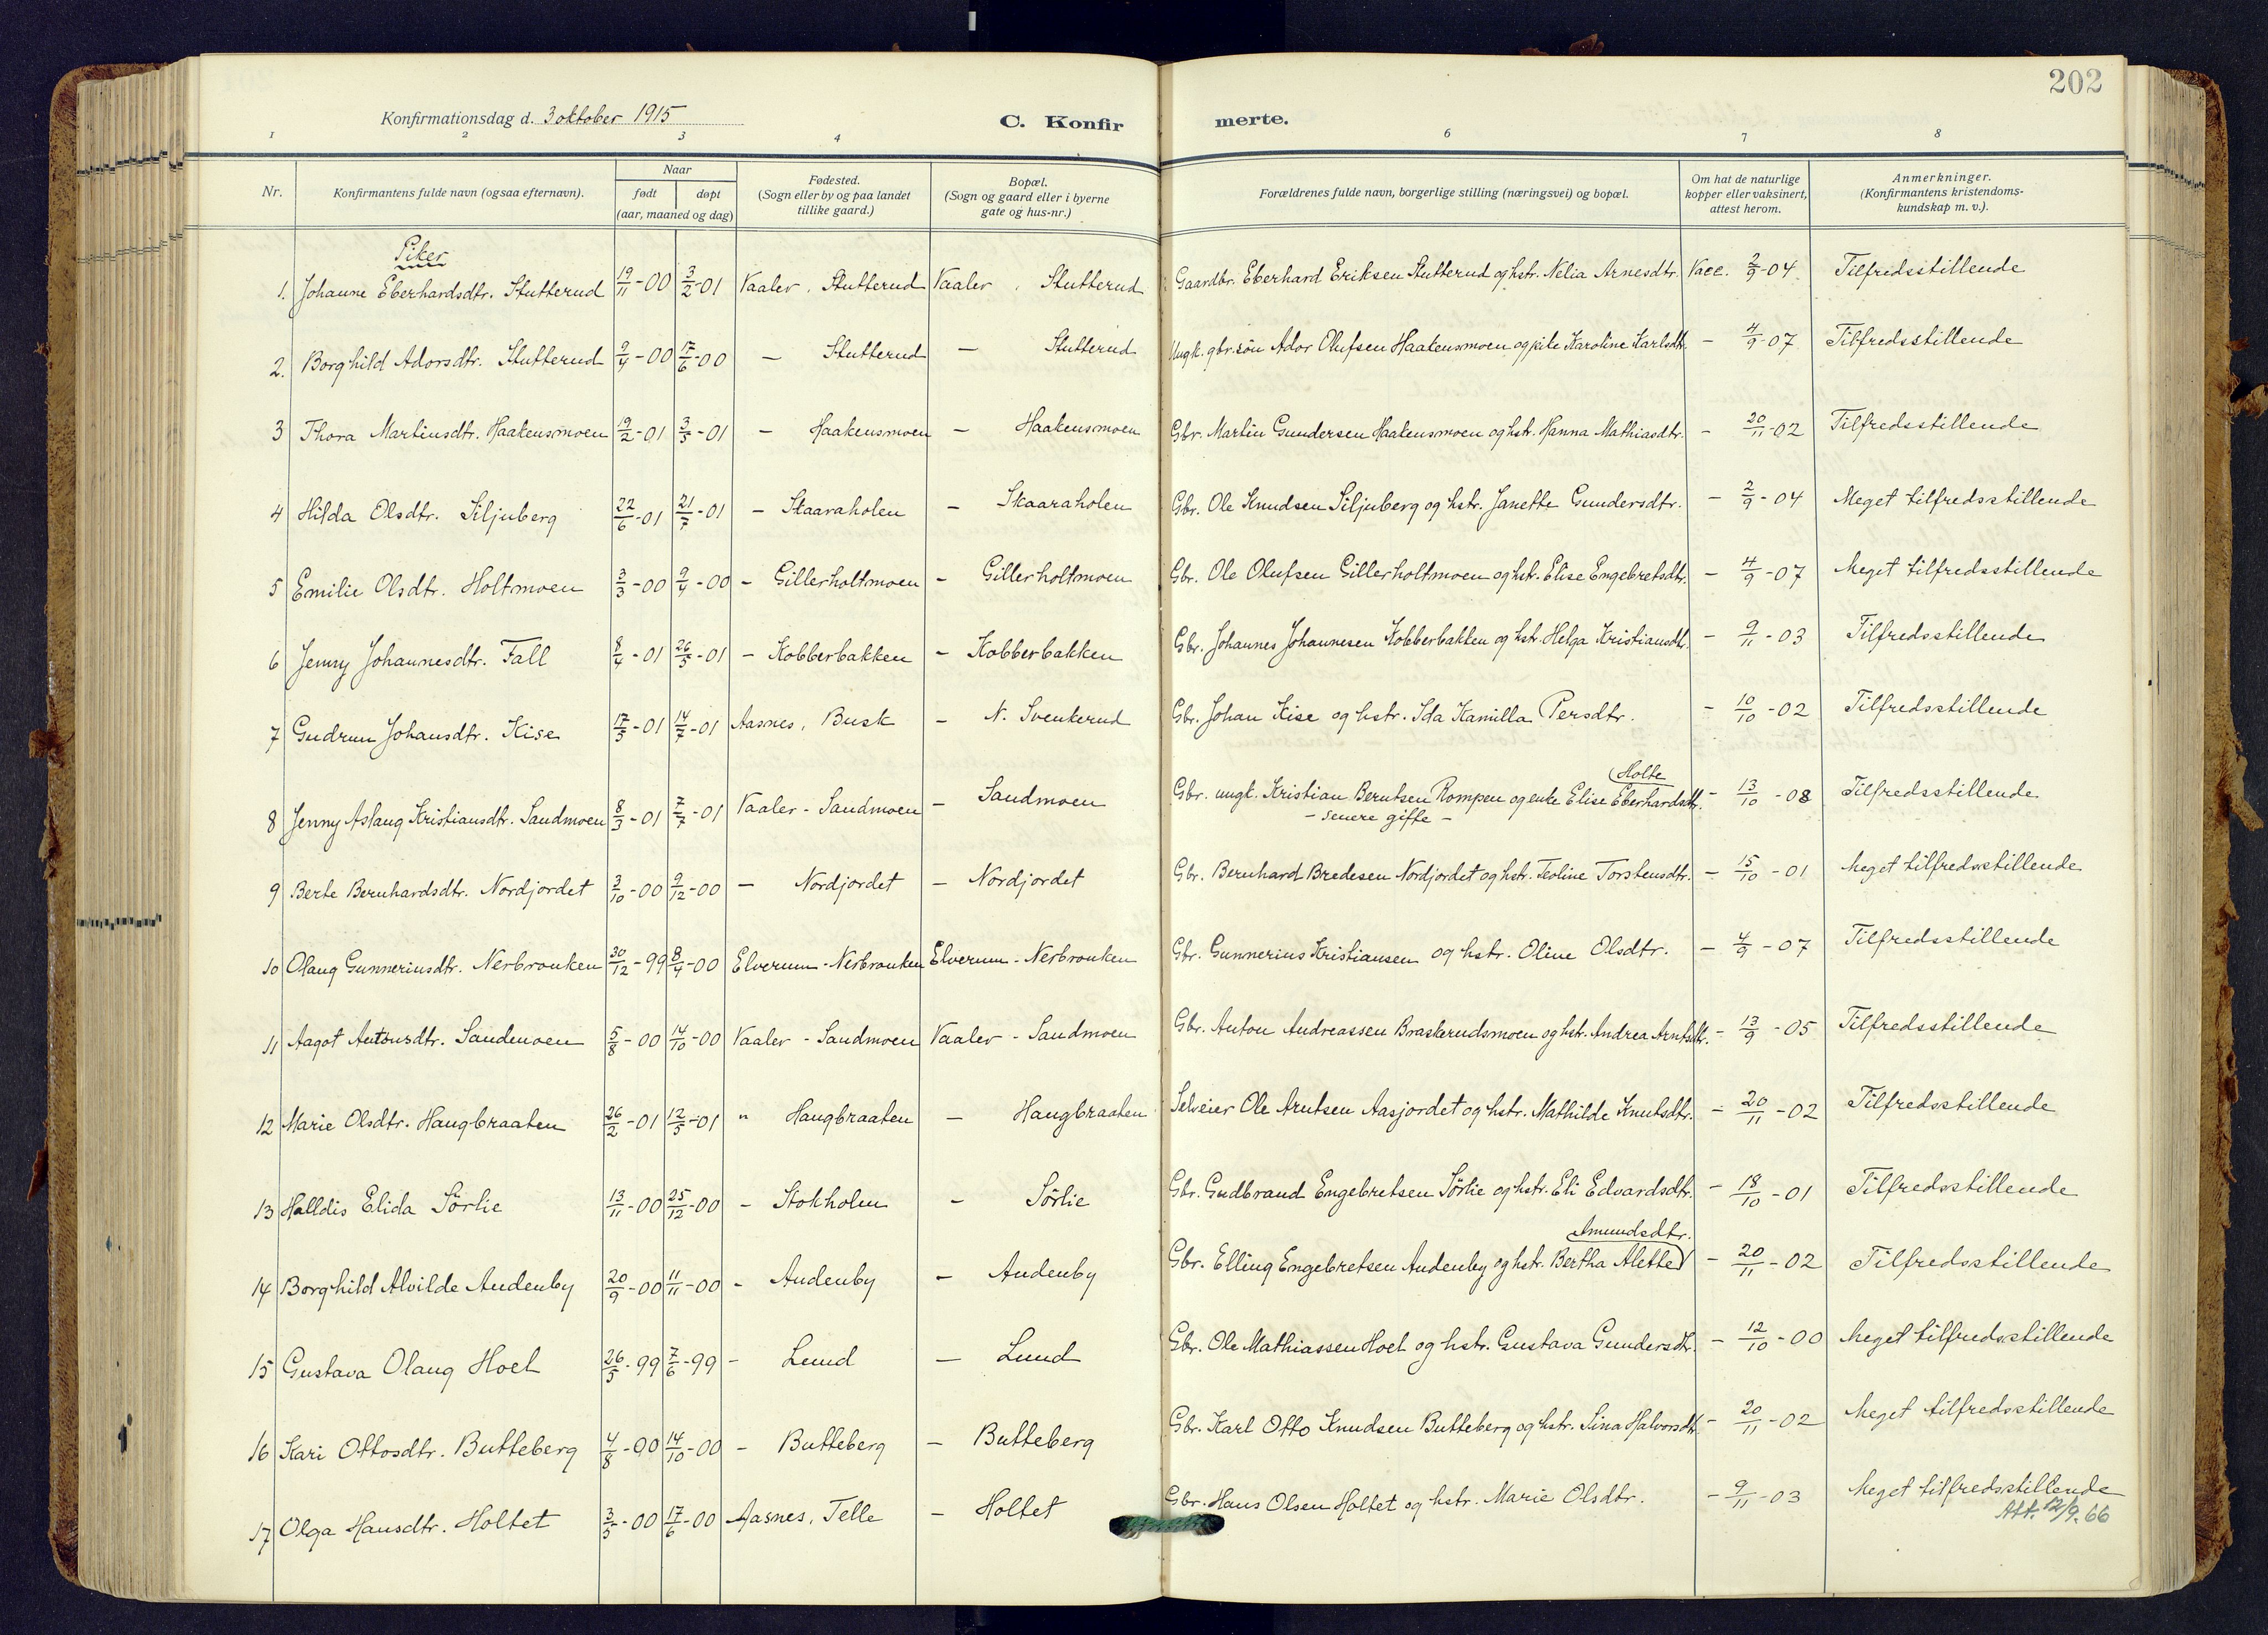 202
Konfirmationsdag d. 3 oktober 1915
C. Konfirmerte.
1 2 3 4 6 7 8
Nr. Konfirmantens fulde navn (ogsaa efternavn). Naar født døpt (aar, maaned og dag) Fødested. (Sogn eller by og paa landet tillike gaard.) Bopæl. (Sogn og gaard eller i byerne gate og hus-nr.) Forældrenes fulde navn, borgerlige stilling (næringsvei) og bopæl. Om hat de naturlige kopper eller vaksinert, attest herom. Anmerkninger. (Konfirmantens kristendoms-kundskap m. v.).
Piker
1. Johanne Eberhardsdtr. Stutterud 19/11-00 3/2-01 Vaaler, Stutterud Vaaler, Stutterud Gaardbr. Eberhard Eriksen Stutterud og hstr. Nelia Arnesdtr. Vacc. 2/9-04 Tilfredsstillende
2. Borghild Adorsdtr. Stutterud 9/4-00 17/6-00 - Stutterud - Stutterud Ungk. gbr.søn Ador Olufsen Haakensmoen og pike Karoline Karlsdtr. - 4/9-07 Tilfredsstillende
3 Thora Martinsdtr. Haakensmoen 19/2-01 3/5-01 - Haakensmoen - Haakensmoen Gbr. Martin Gundersen Haakensmoen og hstr. Hanna Mathiasdtr. - 20/11-02 Tilfredsstillende
4 Hilda Olsdtr. Siljuberg 22/6-01 21/7-01 - Skaaraholen - Skaaraholen Gbr. Ole Knudsen Siljuberg og hstr. Janette Gundersdtr. - 2/9-04 Meget tilfredsstillende
5 Emilie Olsdtr. Holtmoen 3/3-00 9/4-00 - Gillerholtmoen - Gillerholtmoen Gbr. Ole Olufsen Gillerholtmoen og hstr. Elise Engebretsdtr. - 4/9-07 Meget tilfredsstillende
6 Jenny Johannesdtr. Fall 8/4-01 26/5-01 - Kobberbakken - Kobberbakken Gbr. Johannes Johannesen Kobberbakken og hstr. Helga Kristiansdtr. - 9/11-03 Tilfredsstillende
7 Gudrun Johansdtr. Kise 17/5-01 14/7-01 Aasnes, Busk - N. Svenkerud Gbr. Johan Kise og hstr. Ida Kamilla Persdtr. - 10/10-02 Tilfredsstillende
8 Jenny Aslaug Kristiansdtr. Sandmoen 8/3-01 7/7-01 Vaaler - Sandmoen - Sandmoen Gbr. ungk. Kristian Berntsen Rompen og enke Elise Eberhardsdtr. Holte - 13/10-08 Tilfredsstillende
- senere gifte -
9 Berte Bernhardsdtr. Nordjordet 3/10-00 9/12-00 - Nordjordet - Nordjordet Gbr. Bernhard Bredesen Nordjordet og hstr. Teoline Torstensdtr. - 15/10-01 Meget tilfredsstillende
10 Olaug Gunneriusdtr. Nerbronken 30/12-99 8/4-00 Elverum - Nerbronken Elverum - Nerbronken Gbr. Gunnerius Kristiansen og hstr. Oline Olsdtr. - 4/9-07 Tilfredsstillende
11 Aagot Antonsdtr. Sandmoen 5/8-00 14/10-00 Vaaler - Sandmoen Vaaler - Sandmoen Gbr. Anton Andreassen Braskerudsmoen og hstr. Andrea Arntsdtr. - 13/9-05 Tilfredsstillende
12 Marie Olsdtr. Haugbraaten 26/2-01 12/5-01 " Haugbraaten - Haugbraaten Selveier Ole Arntsen Aasjordet og hstr. Mathilde Knutsdtr. - 20/11-02 Tilfredsstillende
13 Halldis Elida Sörlie 13/11-00 25/12-00 - Stokholen - Sörlie Gbr. Gudbrand Engebretsen Sörlie og hstr. Eli Edvardsdtr. - 18/10-01 Tilfredsstillende
14 Borghild Alvilde Audenby 20/9-00 11/11-00 - Audenby - Audenby Gbr. Elling Engebretsen Audenby og hstr. Bertha Alette Amundsdtr. - 20/11-02 Tilfredsstillende
15 Gustava Olaug Hoel 26/5-99 7/6-99 - Lund - Lund Gbr. Ole Mathiassen Hoel og hstr. Gustava Gundersdtr. - 12/10-00 Meget tilfredsstillende
16 Kari Ottosdtr. Butteberg 4/8-00 14/10-00 - Butteberg - Butteberg Gbr. Karl Otto Knudsen Butteberg og hstr. Lina Halvorsdtr. - 20/11-02 Meget tilfredsstillende
17 Olga Hansdtr. Holtet 3/5-00 17/6-00 Aasnes, Telle - Holtet Gbr. Hans Olsen Holtet og hstr. Marie Olsdtr. - 9/11-03 Meget tilfredsstillende
Att. 12/9.66